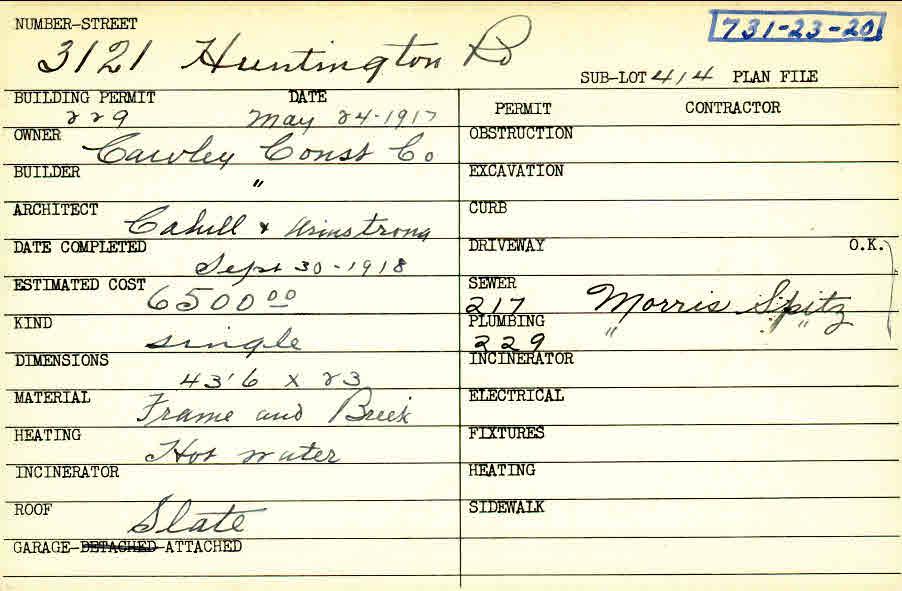 NUMBER-STREET
731-23-20
3121 Huntington Rd
SUB-LOT 414 PLAN FILE
BUILDING PERMIT DATE
229 May 24-1917
OWNER Cawley Const Co
BUILDER "
ARCHITECT Cahill & Armstrong
DATE COMPLETED
Sept 30-1918
ESTIMATED COST 6500 00
KIND single
DIMENSIONS
43'6 x 23
MATERIAL Frame and Brick
HEATING Hot water
INCINERATOR
ROOF Slate
GARAGE-DETACHED-ATTACHED
PERMIT CONTRACTOR
OBSTRUCTION
EXCAVATION
CURB
DRIVEWAY O.K.
SEWER
217 Morris Spitz
PLUMBING
229 " "
INCINERATOR
ELECTRICAL
FIXTURES
HEATING
SIDEWALK